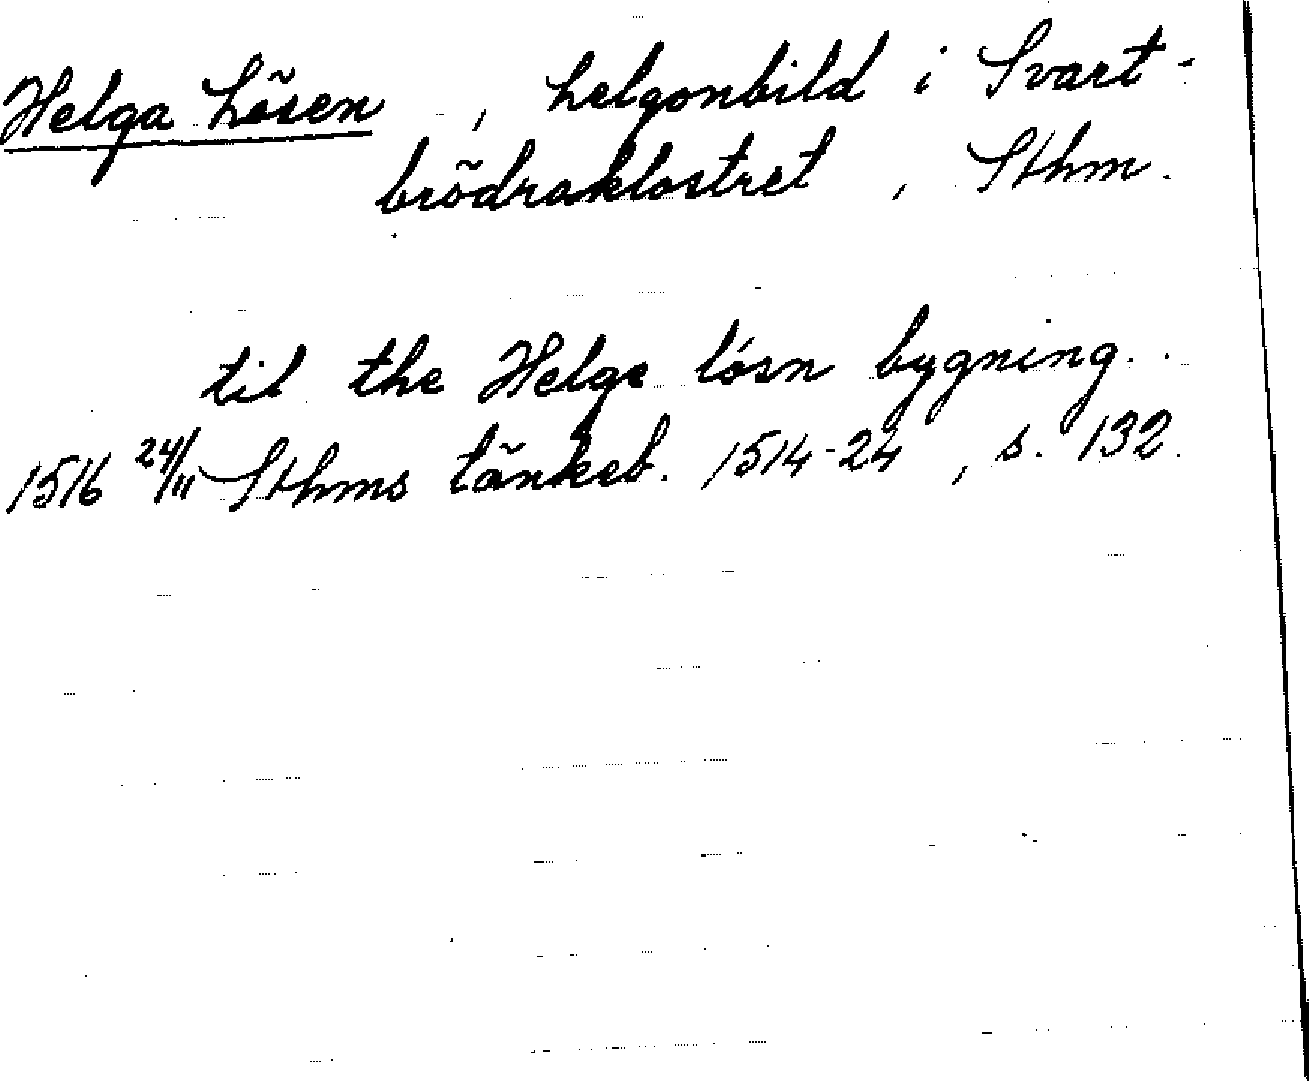 Helga Lösen, helgonbild i Svart-
brödraklostret, Sthm.
til the Helge lösn bygning..
1516 24/11 Sthms tänkeb. 1514-24, s. 132.